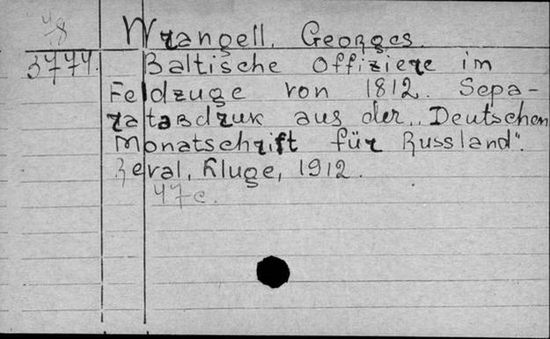 4/8
Wrangell, Georges.
3774.
Baltische Offiziere im
Feldzuge von 1812. Sepa-
ratabdruk aus der „Deutschen
Monatschrift für Russland".
Reval, Kluge, 1912.
47c.